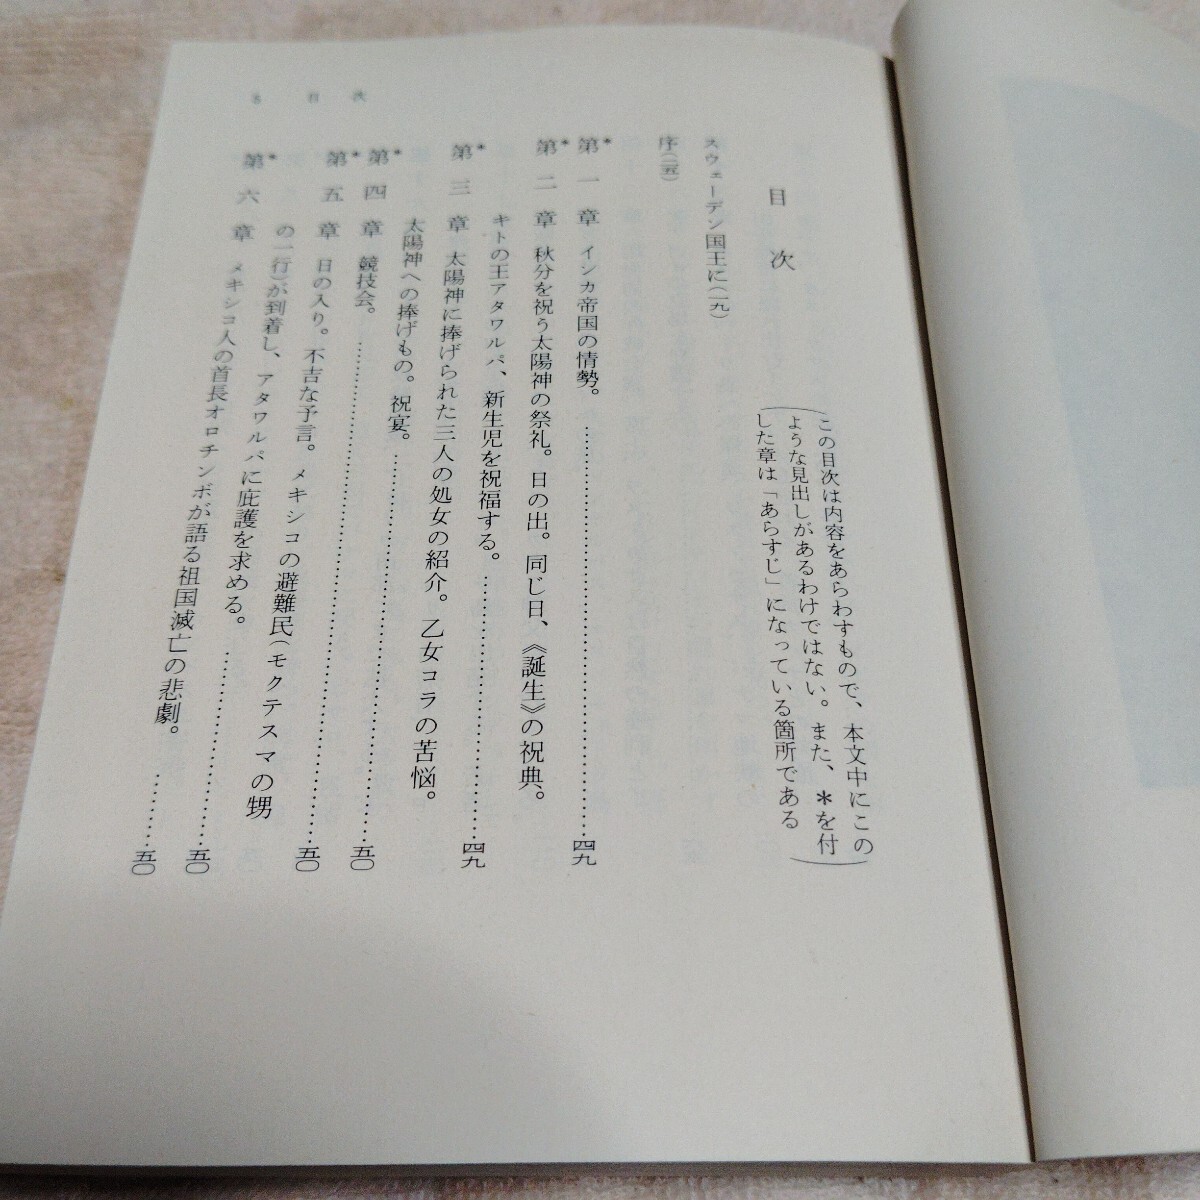 目次
この目次は内容をあらわすもので、本文中にこの
ような見出しがあるわけではない。また、＊を付
した章は「あらすじ」になっている箇所である
スウェーデン国王に（一九）
序（二五）
＊第一章 インカ帝国の情勢。……四九
＊第二章 秋分を祝う太陽神の祭礼。日の出。同じ日、《誕生》の祝典。
キトの王アタワルパ、新生児を祝福する。……四九
＊第三章 太陽神に捧げられた三人の処女の紹介。乙女コラの苦悩。
太陽神への捧げもの。祝宴。……五〇
＊第四章 競技会。……五〇
＊第五章 日の入り。不吉な予言。メキシコの避難民（モクテスマの甥
の一行）が到着し、アタワルパに庇護を求める。……五〇
＊第六章 メキシコ人の首長オロチンボが語る祖国滅亡の悲劇。……五〇
目次